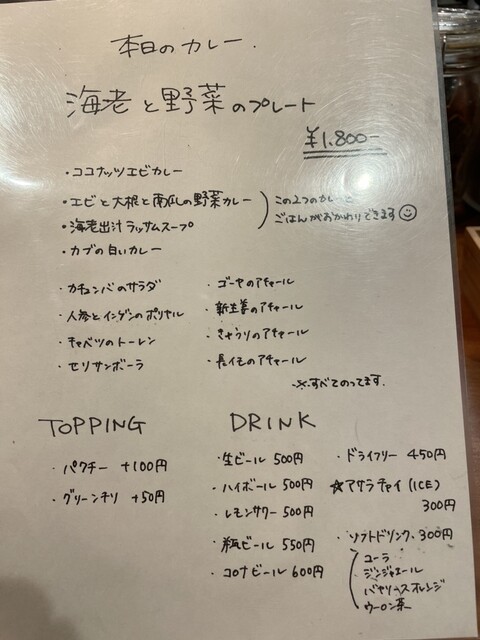 本日のカレー.
海老と野菜のプレート
¥1.800-
・ココナッツエビカレー
・エビと大根と南瓜の野菜カレー
・海老出汁ラッサムスープ
この2つのカレーと
ごはんがおかわりできます
・カブの白いカレー
・カチュンバのサラダ
・人参とインゲンのポリヤル
・キャベツのトーレン
・セリサンボーラ
・ゴーヤのアチャール
・新生姜のアチャール
・きゅうりのアチャール
・長イモのアチャール
※すべてのってます.
TOPPING
・パクチー +100円
・グリーンチリ +50円
DRINK
・生ビール 500円
・ハイボール 500円
・レモンサワー 500円
・瓶ビール 550円
・コロナビール 600円
・ドライフリー 450円
☆アサラチャイ(ICE)
300円
・ソフトドリンク、300円
コーラ
ジンジャエール
バヤリースオレンジ
ウーロン茶